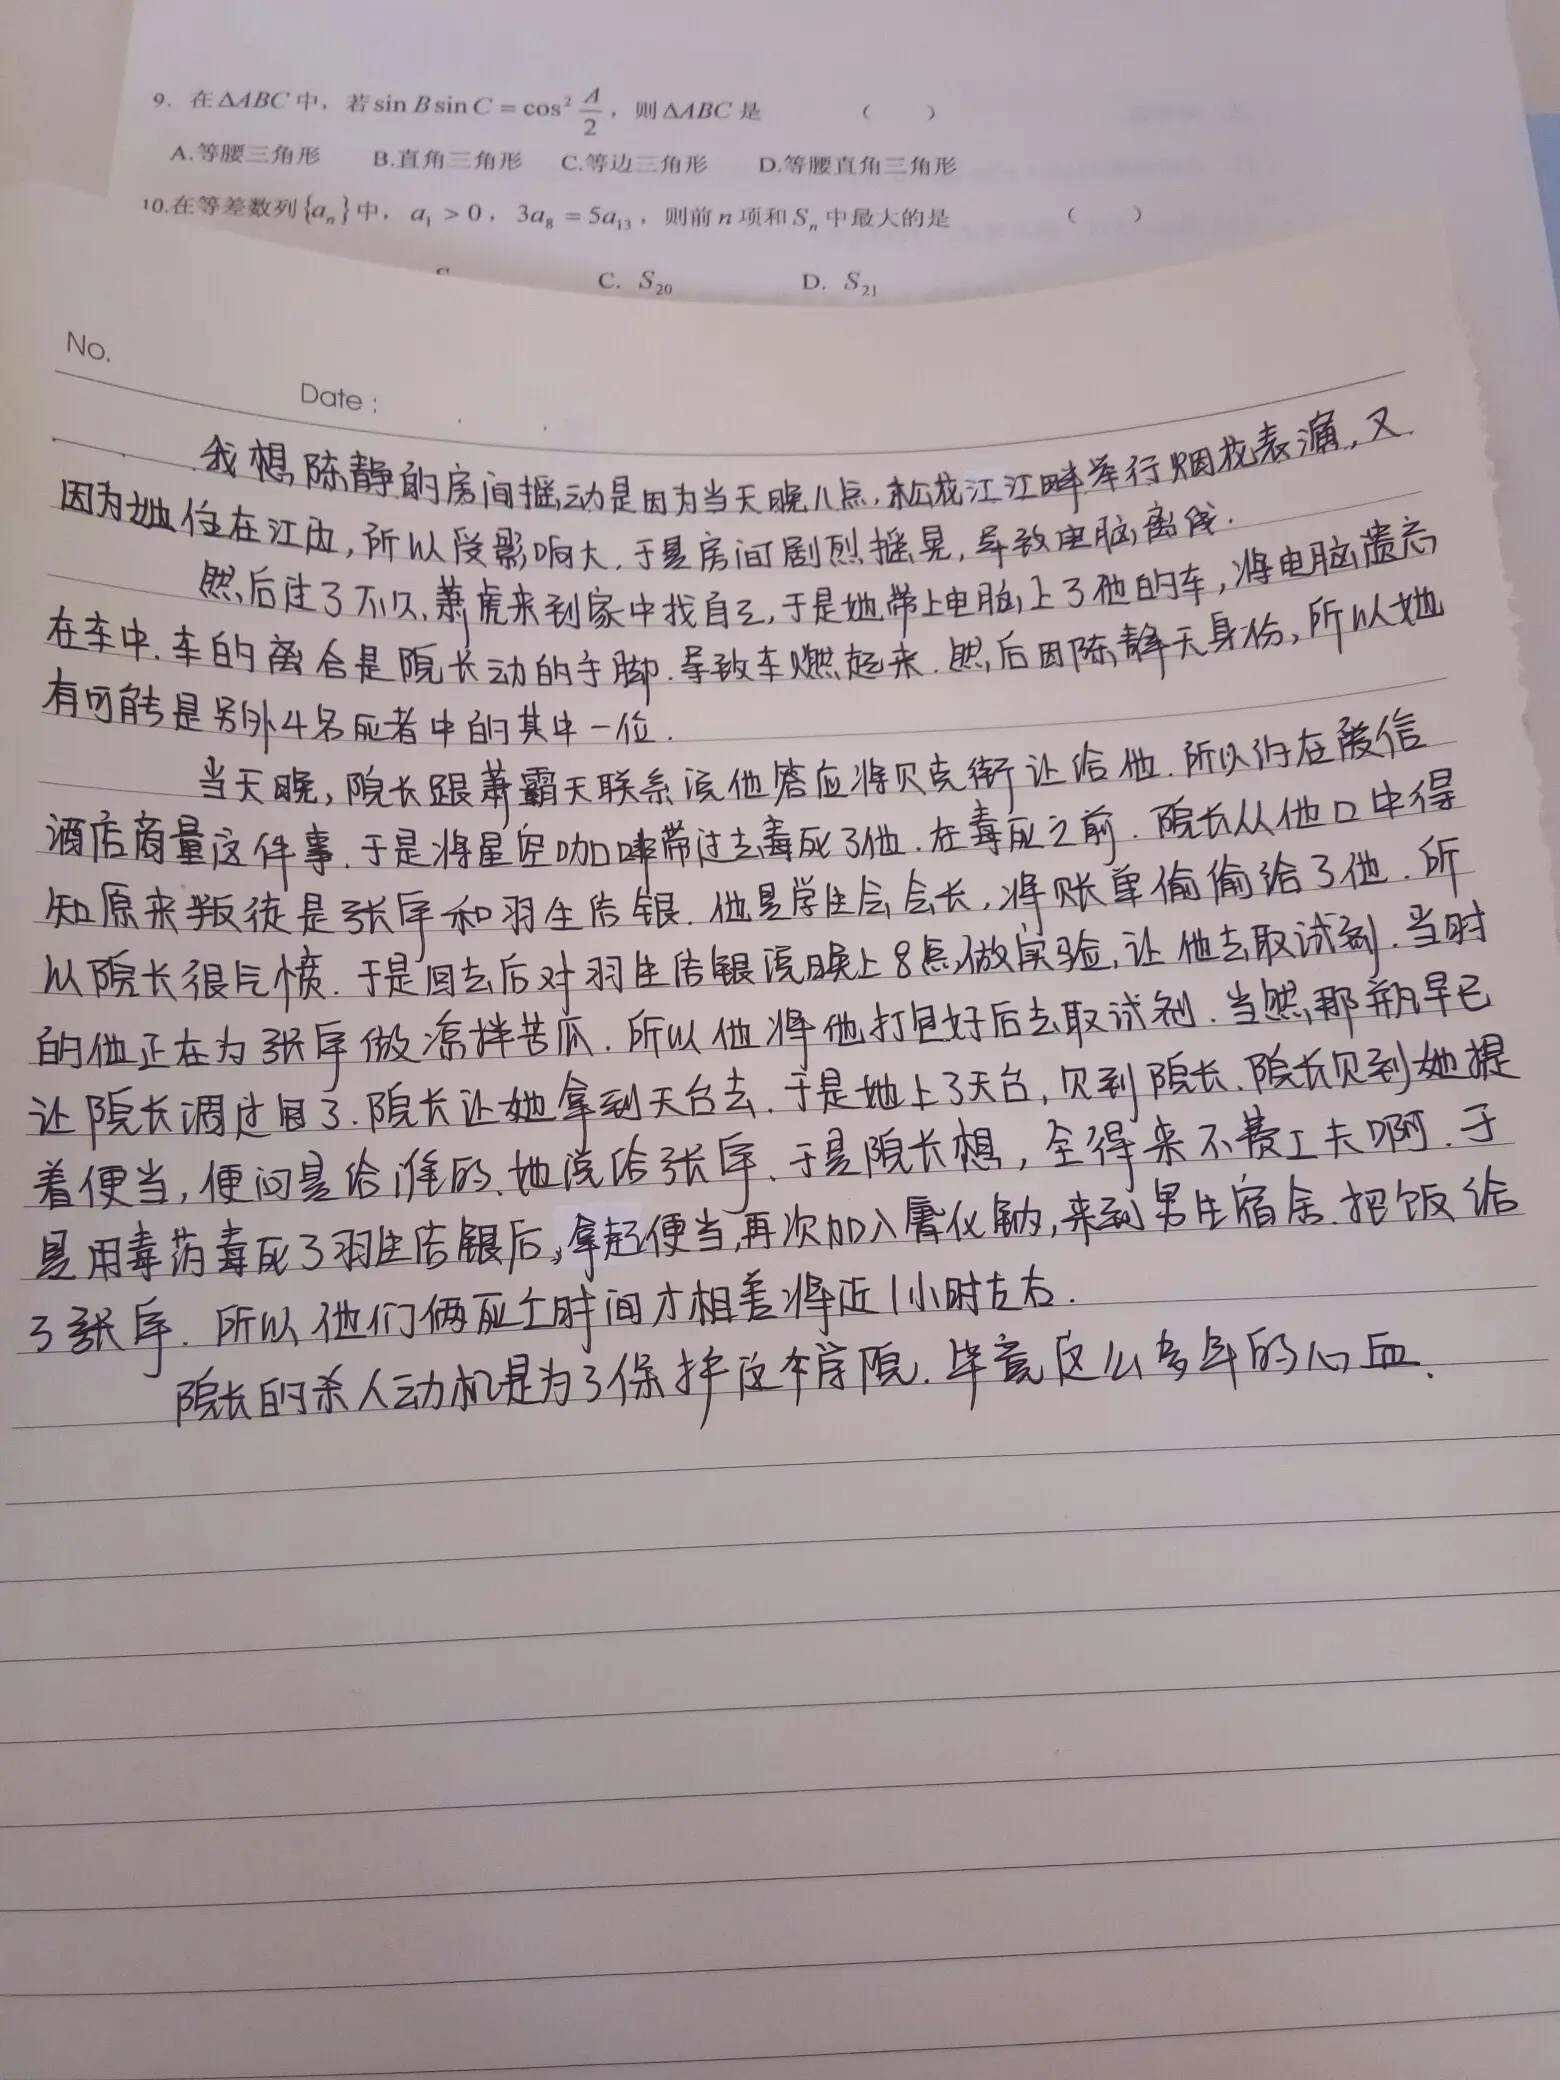 9. 在ΔABC中，若sin B sin C = cos² A/2，则ΔABC是 （ ）
A.等腰三角形 B.直角三角形 C.等边三角形 D.等腰直角三角形
10.在等差数列{aₙ}中，a₁ > 0，3a₈ = 5a₁₃，则前n项和Sₙ中最大的是 （ ）
C. S₂₀ D. S₂₁
No.
Date :
我想陈静的房间摇动是因为当天晚八点，松花江江畔举行烟花表演，又
因为她住在江边，所以受影响大，于是房间剧烈摇晃，导致电脑离线．
然后过了不久，萧虎来到家中找自己，于是她带上电脑上了他的车，将电脑遗忘
在车中．车的离合是院长动的手脚．导致车燃起来．然后因陈静无身份，所以她
有可能是另外4名死者中的其中一位．
当天晚，院长跟萧霸天联系说他答应将贝克街让给他．所以约在爱信
酒店商量这件事．于是将星空咖啡带过去毒死了他．在毒死之前．院长从他口中得
知原来叛徒是张序和羽生店银．他是学生会会长，将账单偷偷给了他．所
以院长很气愤．于是回去后对羽生店银说晚上8点做实验，让他去取试剂．当时
的他正在为张序做凉拌苦瓜．所以他将他打包好后去取试剂．当然，那瓶早已
让院长调过包了．院长让她拿到天台去．于是她上了天台，见到院长．院长见到她提
着便当，便问是给谁的．她说给张序．于是院长想，全得来不费工夫啊．于
是用毒药毒死了羽生店银后，拿起便当，再次加入氰化钠，来到男生宿舍．把饭给
了张序．所以他们俩死亡时间才相差将近1小时左右．
院长的杀人动机是为了保护这个学院．毕竟这么多年的心血．